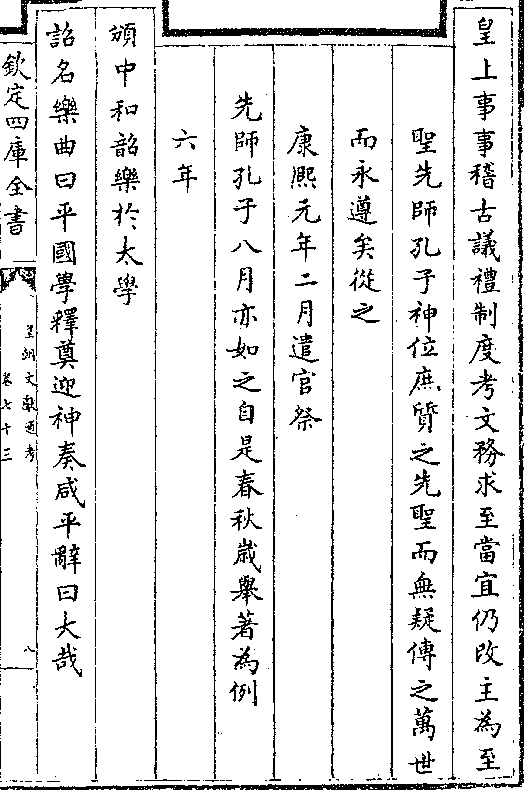 皇上事事稽古議禮制度考文務求至當宜仍改主為至
聖先師孔子神位庶質之先聖而無疑傳之萬世
而永遵矣從之
康熙元年二月遣官祭
先師孔子八月亦如之自是春秋歲舉著為例
六年
頒中和韶樂於太學
詔名樂曲曰平國學釋奠迎神奏咸平辭曰大哉
欽定四庫全書
皇朝文獻通考
卷七十三
八